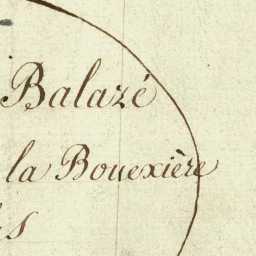 Balazé
la Bouexière